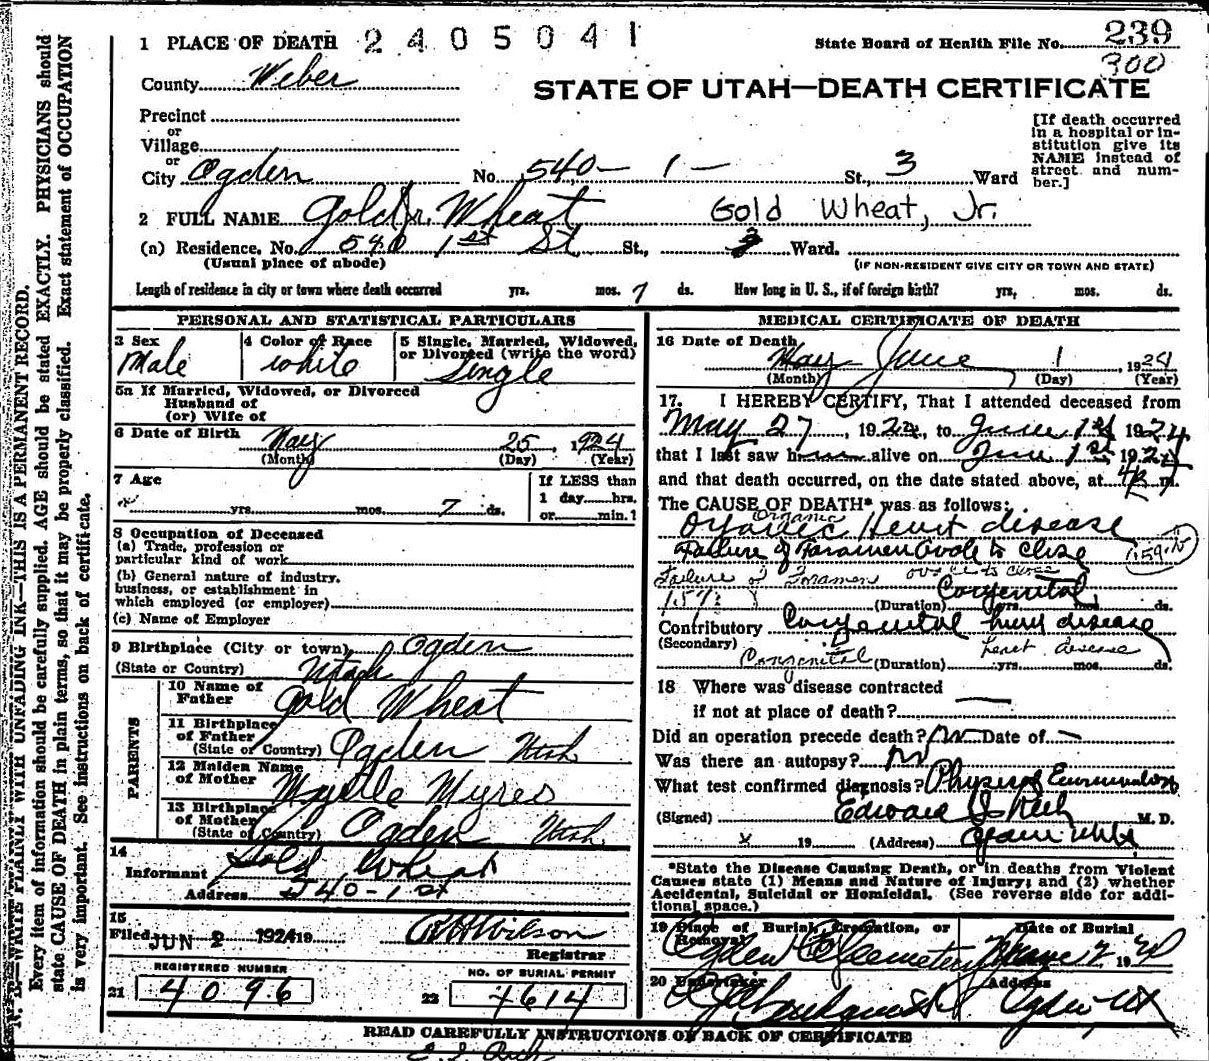 1 PLACE OF DEATH 2405041
State Board of Health File No. 239
300
County Weber
STATE OF UTAH—DEATH CERTIFICATE
Precinct
or
Village
or
City Ogden No. 540 - 1 - St., 3 Ward
[If death occurred in a hospital or institution give its NAME instead of street and number.]
2 FULL NAME Gold Jr. Wheat Gold Wheat, Jr.
(a) Residence, No. 540 1st St St., 3 Ward.
(Usual place of abode) (IF NON-RESIDENT GIVE CITY OR TOWN AND STATE)
Length of residence in city or town where death occurred yrs. mos. 7 ds. How long in U. S., if of foreign birth? yrs. mos. ds.
PERSONAL AND STATISTICAL PARTICULARS
3 Sex 4 Color or Race 5 Single, Married, Widowed, or Divorced (write the word)
Male white Single
5a If Married, Widowed, or Divorced
Husband of
(or) Wife of
6 Date of Birth May 25, 1924
(Month) (Day) (Year)
7 Age If LESS than
yrs. mos. 7 ds. 1 day......hrs.
or......min.?
8 Occupation of Deceased
(a) Trade, profession or
particular kind of work
(b) General nature of industry,
business, or establishment in
which employed (or employer)
(c) Name of Employer
9 Birthplace (City or town) Ogden
(State or Country) Utah
PARENTS
10 Name of Father Gold Wheat
11 Birthplace of Father (State or Country) Ogden Utah
12 Maiden Name of Mother Myrtle Myres
13 Birthplace of Mother (State or Country) Ogden Utah
14 Informant Gold Wheat
Address 540-1 st
15 Filed JUN 2 1924 19
Registrar
REGISTERED NUMBER NO. OF BURIAL PERMIT
21 4096 22 7614
MEDICAL CERTIFICATE OF DEATH
16 Date of Death May June 1, 1924
(Month) (Day) (Year)
17. I HEREBY CERTIFY, That I attended deceased from
May 27, 1924, to June 1st 1924
that I last saw him alive on June 1st 1924
and that death occurred, on the date stated above, at m.
The CAUSE OF DEATH* was as follows:
Organic
Organic Heart disease
Failure of Foramen Ovale to close
Failure of Foramen ovale to close
(Duration) Congenital yrs. mos. ds.
Contributory Congenital heart disease
(Secondary) Heart disease
Congenital (Duration) yrs. mos. ds.
18 Where was disease contracted
if not at place of death?
Did an operation precede death? No Date of
Was there an autopsy? No
What test confirmed diagnosis? Physical Examination
(Signed) Edward I Rich M. D.
x 19 (Address) Ogden Utah
*State the Disease Causing Death, or in deaths from Violent
Causes state (1) Means and Nature of Injury; and (2) whether
Accidental, Suicidal or Homicidal. (See reverse side for addi-
tional space.)
19 Place of Burial, Cremation, or Removal Date of Burial
Ogden C Cemetery June 2 19
20 Undertaker Address
Ogden, Ut
READ CAREFULLY INSTRUCTIONS ON BACK OF CERTIFICATE
E. I. Rich
N. B.—WRITE PLAINLY WITH UNFADING INK—THIS IS A PERMANENT RECORD.
Every item of information should be carefully supplied. AGE should be stated EXACTLY. PHYSICIANS should
state CAUSE OF DEATH in plain terms, so that it may be properly classified. Exact statement of OCCUPATION
is very important. See instructions on back of certificate.